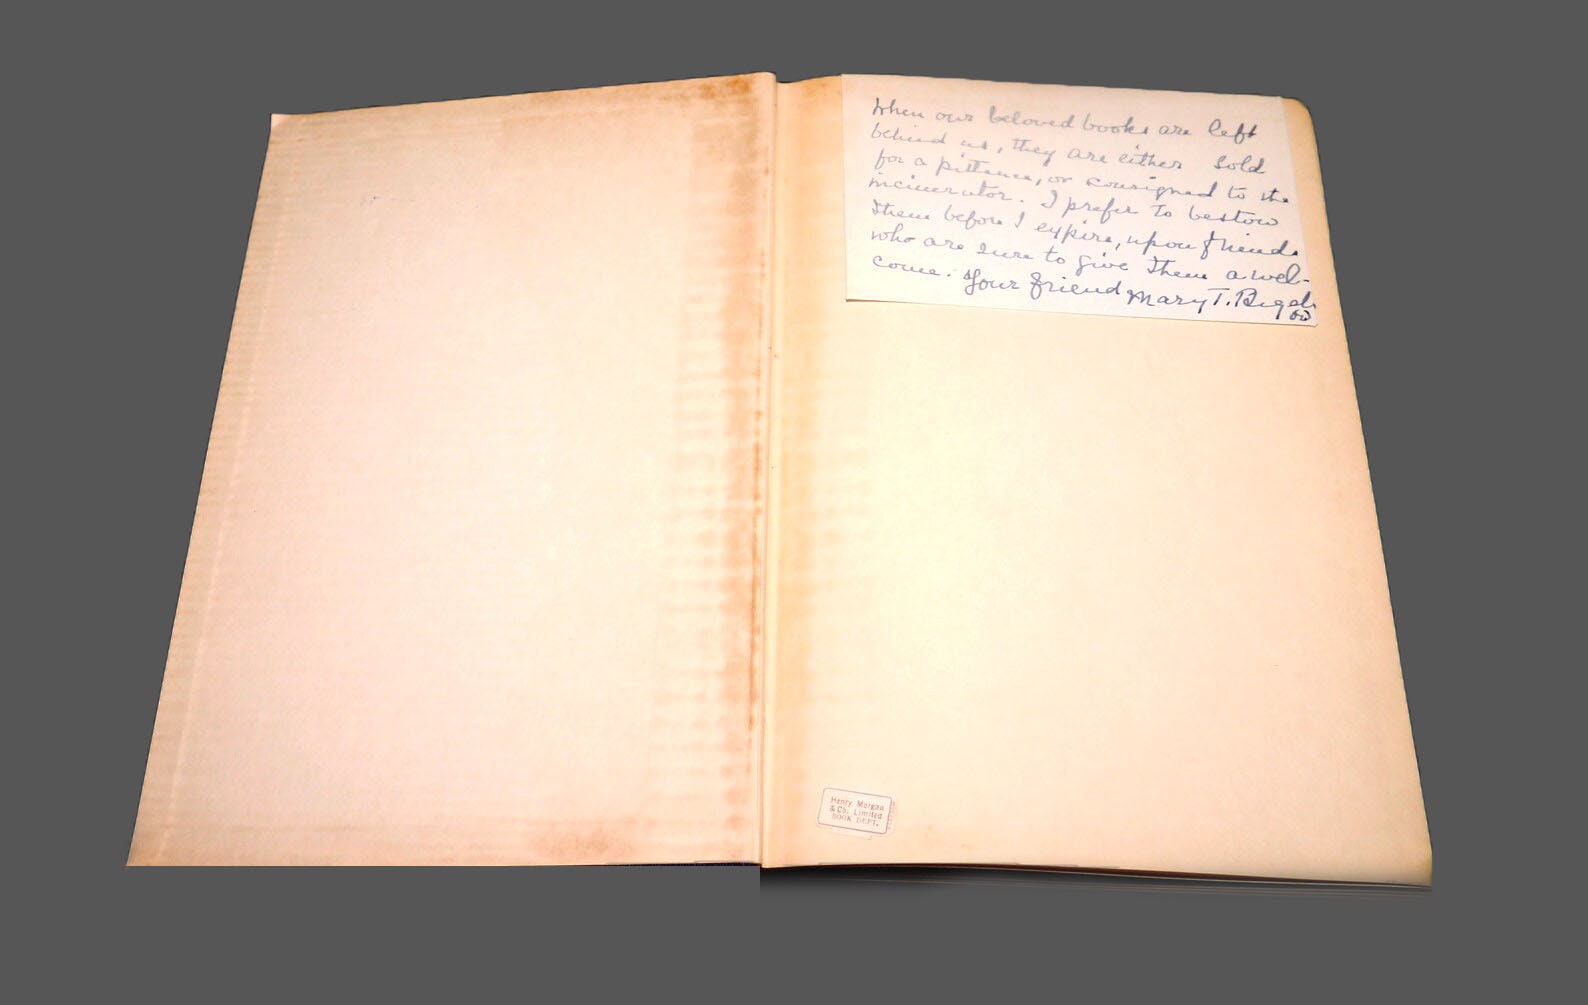 When our beloved books are left
behind us, they are either sold
for a pittance, or consigned to the
incinerator. I prefer to bestow
them before I expire, upon friends
who are sure to give them a wel-
come. Your friend Mary T. Bigel
ow
Henry Morgan
& Co. Limited
BOOK DEPT.